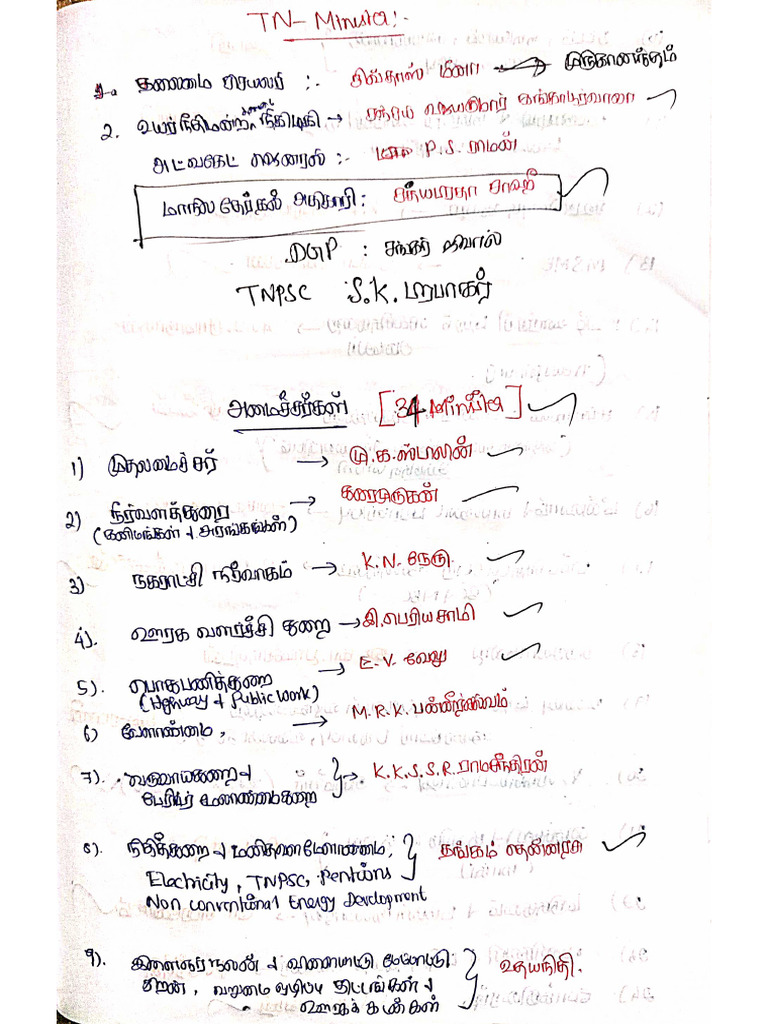 TN- Minista:-
1. தலைமை செயலர் :- சிவ்தாஸ் மீனா → முருகானந்தம்
2. உயர்நீதிமன்ற தலைமை நீதிபதி →
அட்வகேட் ஜெனரல் :- P.S. ராமன்
மாநில தேர்தல் அதிகாரி : சத்யபிரதா சாஹூ
DGP : சங்கர் ஜிவால்
TNPSC S.K. பிரபாகர்
அமைச்சர்கள் [34 Minista]
1) முதலமைச்சர் → மு.க.ஸ்டாலின்
2) நீர்வளத்துறை → துரைமுருகன்
(கனிமங்கள் +
3) நகராட்சி நிர்வாகம் → K.N. நேரு.
4). ஊரக வளர்ச்சி துறை → இ.பெரியசாமி
5). பொதுபணித்துறை → E.V. வேலு
(Highway + Public Work)
6) வேளாண்மை, → M.R.K. பன்னீர்செல்வம்
7). வருவாய்துறை + } → K.K.S.S.R. ராமசந்திரன்
பேரிடர் மேலாண்மைதுறை
8). நிதித்துறை + மனிதவளமேலாண்மை, } தங்கம் தென்னரசு
Electricity, TNPSC, Pentions
Non Conventional Energy Development
9). இளைஞர்நலன் + விளையாட்டு மேம்பாட்டு } உதயநிதி.
திறன், வறுமை ஒழிப்பு திட்டங்கள் +
ஊரகக் கடன்கள்